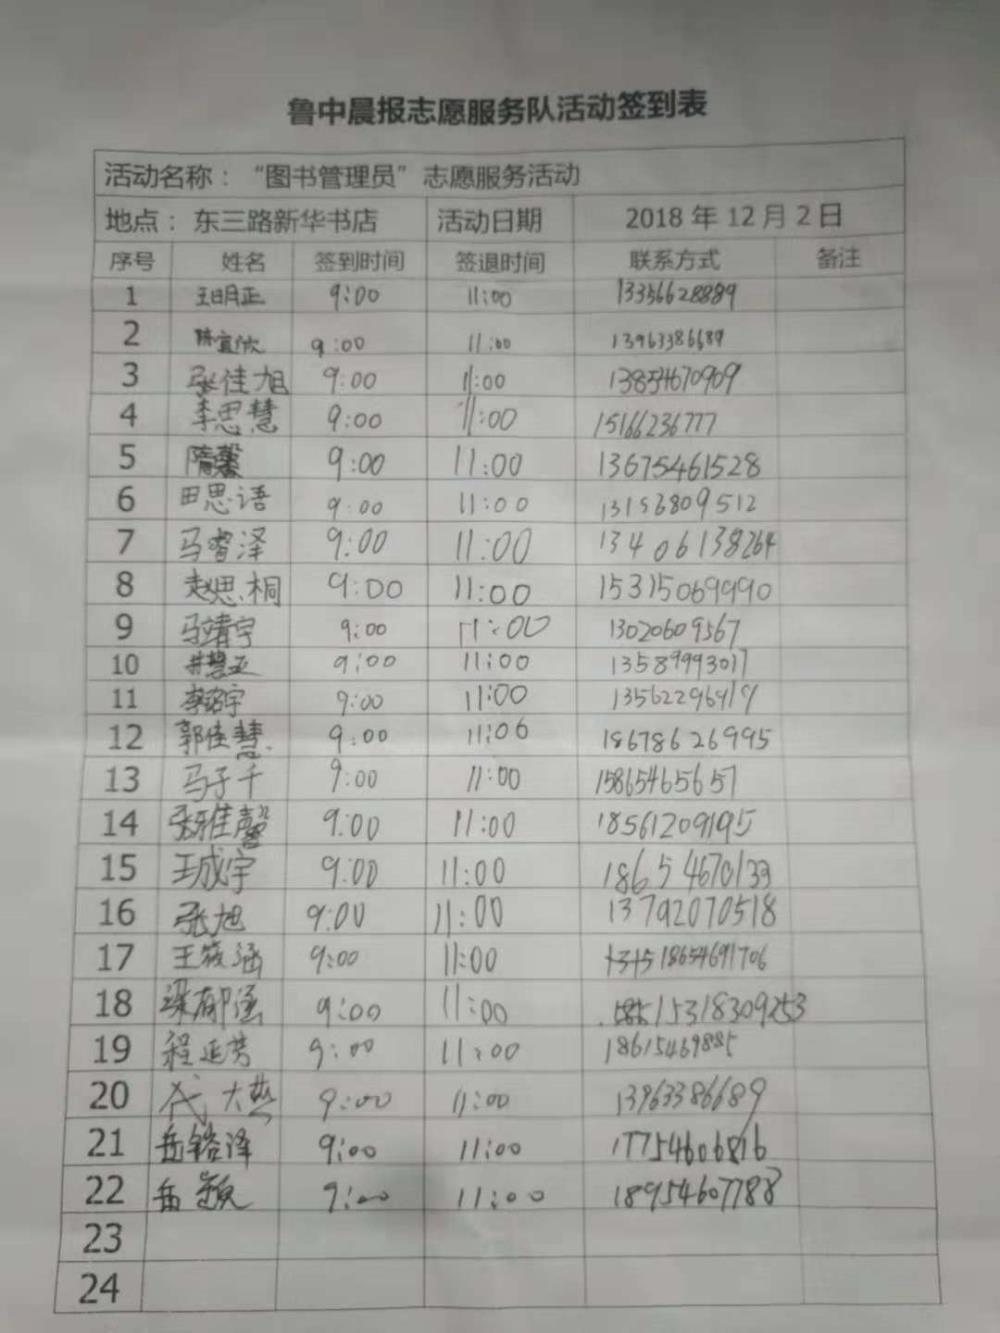 鲁中晨报志愿服务队活动签到表
活动名称：“图书管理员”志愿服务活动
地点：东三路新华书店 活动日期 2018年12月2日
序号 姓名 签到时间 签退时间 联系方式 备注
1 王明正 9:00 11:00 13356628889
2 陈宣欣 9:00 11:00 13963386689
3 张佳旭 9:00 11:00 13854670909
4 李思慧 9:00 11:00 15166236777
5 隋馨 9:00 11:00 13675461528
6 田思语 9:00 11:00 13156809512
7 马睿泽 9:00 11:00 13406138264
8 赵思桐 9:00 11:00 15315069990
9 马靖宇 9:00 11:00 13020609567
10 9:00 11:00 13589993017
11 9:00 11:00 13562296919
12 郭佳慧 9:00 11:06 18678626995
13 马子千 9:00 11:00 15865465657
14 张雅馨 9:00 11:00 18561209195
15 王成宇 9:00 11:00 18654670133
16 张旭 9:00 11:00 13792070518
17 王筱涵 9:00 11:00 18654691706
18 梁郁涵 9:00 11:00 15318309253
19 程延芳 9:00 11:00 18615469885
20 代大燕 9:00 11:00 13963386689
21 岳铭泽 9:00 11:00 17754606816
22 岳颖 9:00 11:00 18954607788
23
24